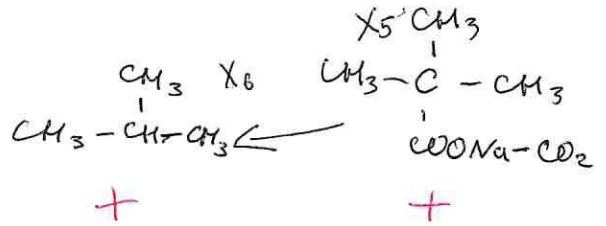 X5 CH3
CH3 X6 CH3-C-CH3
CH3-CH-CH3 COONa-CO2
+ +